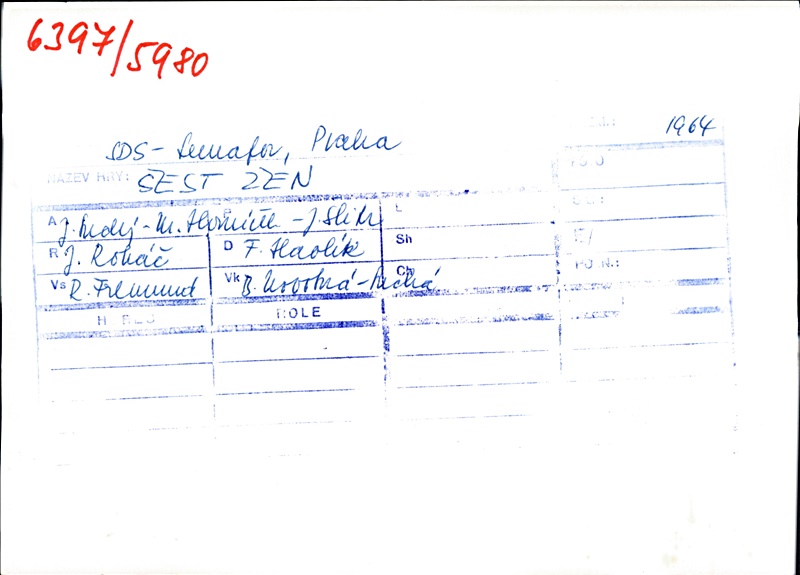 6397/5980
1964
SDS - Semafor, Praha
NÁZEV HRY: ŠEST ŽEN
A J. - M. Horníček - J. Šlitr L
R J. Roháč D F. Havlík Sh
Vs R. Fremund Vk B. Novotná - Ch
HEREC ROLE